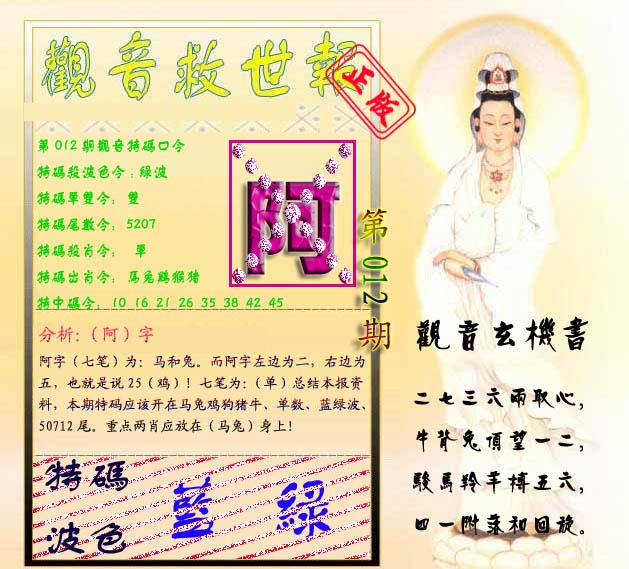 觀音救世報
正版
第012期觀音特碼口令
特碼殺波色令：綠波
特碼單雙令： 雙
特碼尾數令： 5207
特碼殺肖令： 單
特碼出肖令： 馬兔鷄猴猪
特中碼令： 10 16 21 26 35 38 42 45
阿
第012期
分析:（阿）字
阿字（七笔）为：马和兔。而阿字左边为二，右边为
五，也就是说 25（鸡）！七笔为:（单）总结本报资
料，本期特码应该开在马兔鸡狗猪牛、单数、蓝绿波、
50712 尾。重点两肖应放在（马兔）身上！
特碼
波色
藍 綠
觀音玄機書
二七三六兩取心，
牛背兔頂望一二，
駿馬羚羊搏五六，
四一附落和回旋。